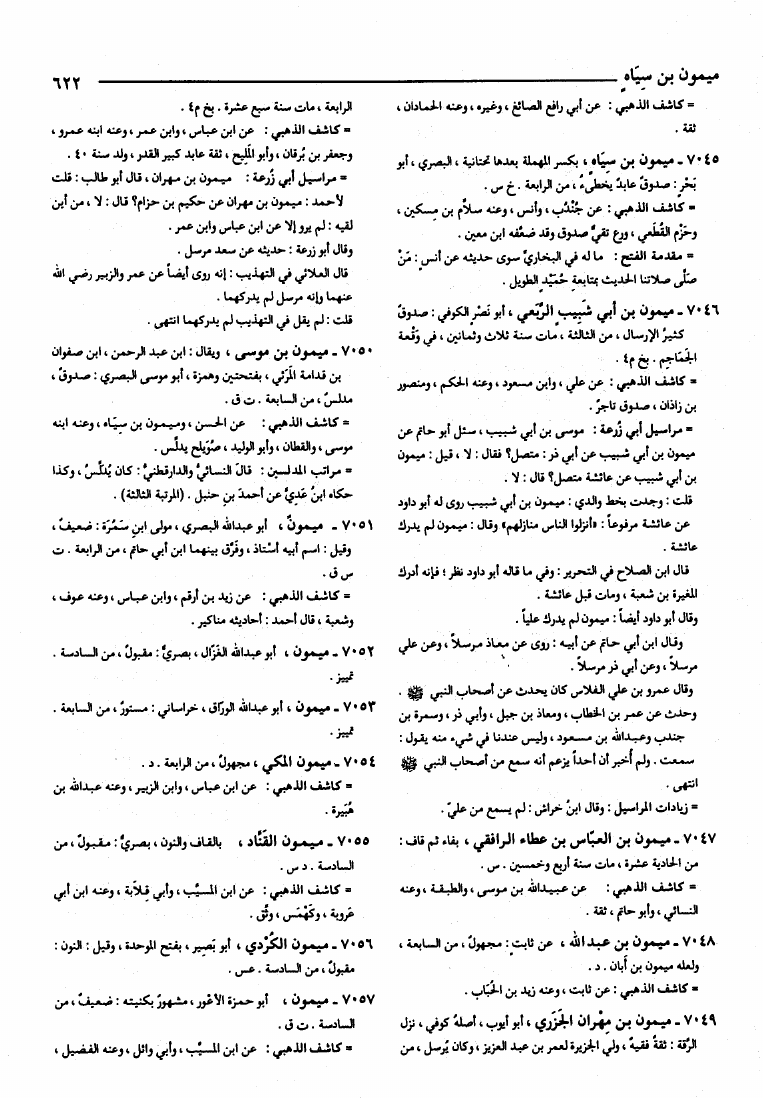 ميمون بن سِيَاهٍ ٦٢٢
= كاشف الذهبي : عن أبي رافع الصائغ ، وغيره ، وعنه الحمادان ،
ثقة .
٧٠٤٥ ـ ميمون بن سِيَاهٍ ، بكسر المهملة بعدها تحتانية ، البصري ، أبو
بَحْرٍ : صدوقٌ عابدٌ يخطىءُ ، من الرابعة . خ س .
= كاشف الذهبي : عن جُنْدُب ، وأنس ، وعنه سلاَّم بن مِسكين ،
وحَزْم القُطَعي ، ورع تقيٌّ صدوق وقد ضعَّفه ابن معين .
= مقدمة الفتح : ما له في البخاريّ سوى حديثه عن أنسٍ : مَنْ
صَلَّى صلاتنا الحديث بمتابعةِ حُمَيْدٍ الطويل .
٧٠٤٦ ـ ميمون بن أبي شَبِيبٍ الرَّبَعي ، أبو نَصْرٍ الكوفي : صدوقٌ
كثيرُ الإرسال ، من الثالثة ، مات سنة ثلاث وثمانين ، في وَقْعة
الجَمَاجِم . بخ م٤ .
= كاشف الذهبي : عن علي ، وابن مسعود ، وعنه الحكم ، ومنصور
بن زاذان ، صدوق تاجرٌ .
= مراسيل أبي زُرعة : موسى بن أبي شبيب ، سئل أبو حاتم عن
ميمون بن أبي شبيب عن أبي ذر : متصل؟ فقال : لا ، قيل : ميمون
بن أبي شبيب عن عائشة متصل؟ قال : لا .
قلت : وجدت بخط والدي : ميمون بن أبي شبيب روى له أبو داود
عن عائشة مرفوعاً : «أنزلوا الناس منازلهم» وقال : ميمون لم يدرك
عائشة .
قال ابن الصلاح في التحرير : وفي ما قاله أبو داود نظر ؛ فإنه أدرك
المغيرة بن شعبة ، ومات قبل عائشة .
وقال أبو داود أيضاً : ميمون لم يدرك علياً .
وقال ابن أبي حاتم عن أبيه : روى عن معاذ مرسلاً ، وعن علي
مرسلاً ، وعن أبي ذر مرسلاً .
وقال عمرو بن علي الفلاس كان يحدث عن أصحاب النبي ﷺ .
وحدث عن عمر بن الخطاب ، ومعاذ بن جبل ، وأبي ذر ، وسمرة بن
جندب وعبدالله بن مسعود ، وليس عندنا في شيء منه يقول :
سمعت . ولم أُخبر أن أحداً يزعم أنه سمع من أصحاب النبي ﷺ
انتهى .
= زيادات المراسيل : وقال ابنُ خراش : لم يسمع من عليّ .
٧٠٤٧ ـ ميمون بن العبَّاس بن عطاء الرافقي ، بفاء ثم قاف :
من الحادية عشرة ، مات سنة أربع وخمسين . س .
= كاشف الذهبي : عن عبيدالله بن موسى ، والطبقة ، وعنه
النسائي ، وأبو حاتم ، ثقة .
٧٠٤٨ ـ ميمون بن عبد الله ، عن ثابت : مجهولٌ ، من السابعة ،
ولعله ميمون بن أَبان . د .
= كاشف الذهبي : عن ثابت ، وعنه زيد بن الحُبَاب .
٧٠٤٩ ـ ميمون بن مِهْران الجَزَري ، أبو أيوب ، أصلهُ كوفي ، نزل
الرَّقة : ثقةٌ فقيهٌ ، ولي الجزيرة لعمر بن عبد العزيز ، وكان يُرسل ، من
الرابعة ، مات سنة سبع عشرة . بخ م٤ .
= كاشف الذهبي : عن ابن عباس ، وابن عمر ، وعنه ابنه عمرو ،
وجعفر بن بُرقان ، وأبو المَلِيح ، ثقة عابد كبير القدر ، ولد سنة ٤٠ .
= مراسيل أبي زُرعة : ميمون بن مهران ، قال أبو طالب : قلت
لأحمد : ميمون بن مهران عن حكيم بن حزام؟ قال : لا ، من أين
لقيه : لم يرو إلا عن ابن عباس وابن عمر .
وقال أبو زرعة : حديثه عن سعد مرسل .
قال العلائي في التهذيب : إنه روى أيضاً عن عمر والزبير رضي الله
عنهما وإنه مرسل لم يدركهما .
قلت : لم يقل في التهذيب لم يدركهما انتهى .
٧٠٥٠ ـ ميمون بن موسى ، ويقال : ابن عبد الرحمن ، ابن صفوان
بن قدامة المَرَئي ، بفتحتين وهمزة ، أبو موسى البصري : صدوقٌ ،
مدلسٌ ، من السابعة . ت ق .
= كاشف الذهبي : عن الحسن ، وميمون بن سِيَاه ، وعنه ابنه
موسى ، والقطان ، وأبو الوليد ، صُوَيلح يدلِّس .
= مراتب المدلسين : قالَ النسائيُّ والدارقطنيُّ : كان يُدلِّسُ ، وكذا
حكاه ابنُ عَديٍّ عن أحمدَ بنِ حنبل . (المرتبة الثالثة) .
٧٠٥١ ـ ميمونٌ ، أبو عبدالله البصري ، مولى ابنِ سَمُرَة : ضعيفٌ ،
وقيل : اسم أبيه أُسْتاذ ، وفَرَّق بينهما ابن أبي حاتم ، من الرابعة . ت
س ق .
= كاشف الذهبي : عن زيد بن أرقم ، وابن عباس ، وعنه عوف ،
وشعبة ، قال أحمد : أحاديثه مناكير .
٧٠٥٢ ـ ميمون ، أبو عبدالله الغَزَّال ، بصريٌّ : مقبولٌ ، من السادسة .
تمييز .
٧٠٥٣ ـ ميمون ، أبو عبدالله الورَّاق ، خراساني : مستورٌ ، من السابعة .
تمييز .
٧٠٥٤ ـ ميمون المكي ، مجهولٌ ، من الرابعة . د .
= كاشف الذهبي : عن ابن عباس ، وابن الزبير ، وعنه عبدالله بن
هُبَيرة .
٧٠٥٥ ـ ميمون القَنَّاد ، بالقاف والنون ، بصريٌّ : مقبولٌ ، من
السادسة . د س .
= كاشف الذهبي : عن ابن المسيَّب ، وأبي قِلاَبة ، وعنه ابن أبي
عَروبة ، وكَهْمَس ، وثِّق .
٧٠٥٦ ـ ميمون الكُرْدي ، أبو بَصِير ، بفتح الموحدة ، وقيل : النون :
مقبولٌ ، من السادسة . عس .
٧٠٥٧ ـ ميمون ، أبو حمزة الأعْوَر ، مشهورٌ بكنيته : ضعيفٌ ، من
السادسة . ت ق .
= كاشف الذهبي : عن ابن المسيَّب ، وأبي وائل ، وعنه الفضيل ،